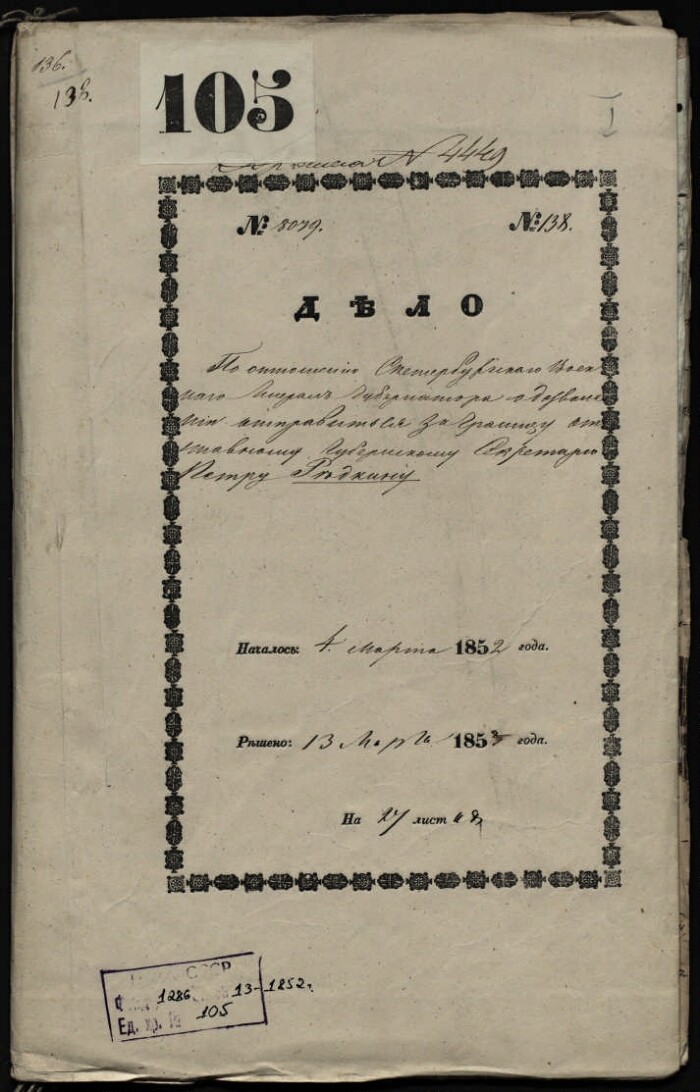 136.
138.
105
I
№ 4449
№ 3079.
№ 138.
ДѢЛО
По отношенію С.петербургскаго Воен-
наго Генералъ Губернатора о дозволе-
ніи отправиться за границу от-
ставному Губернскому Секретарю
Петру Рѣдкину
Началось: 4. Марта 1852 года.
Рѣшено: 13 Марта 1853 года.
На 27 листахъ
СССР
1286 13-1852г.
Ед. хр. № 105